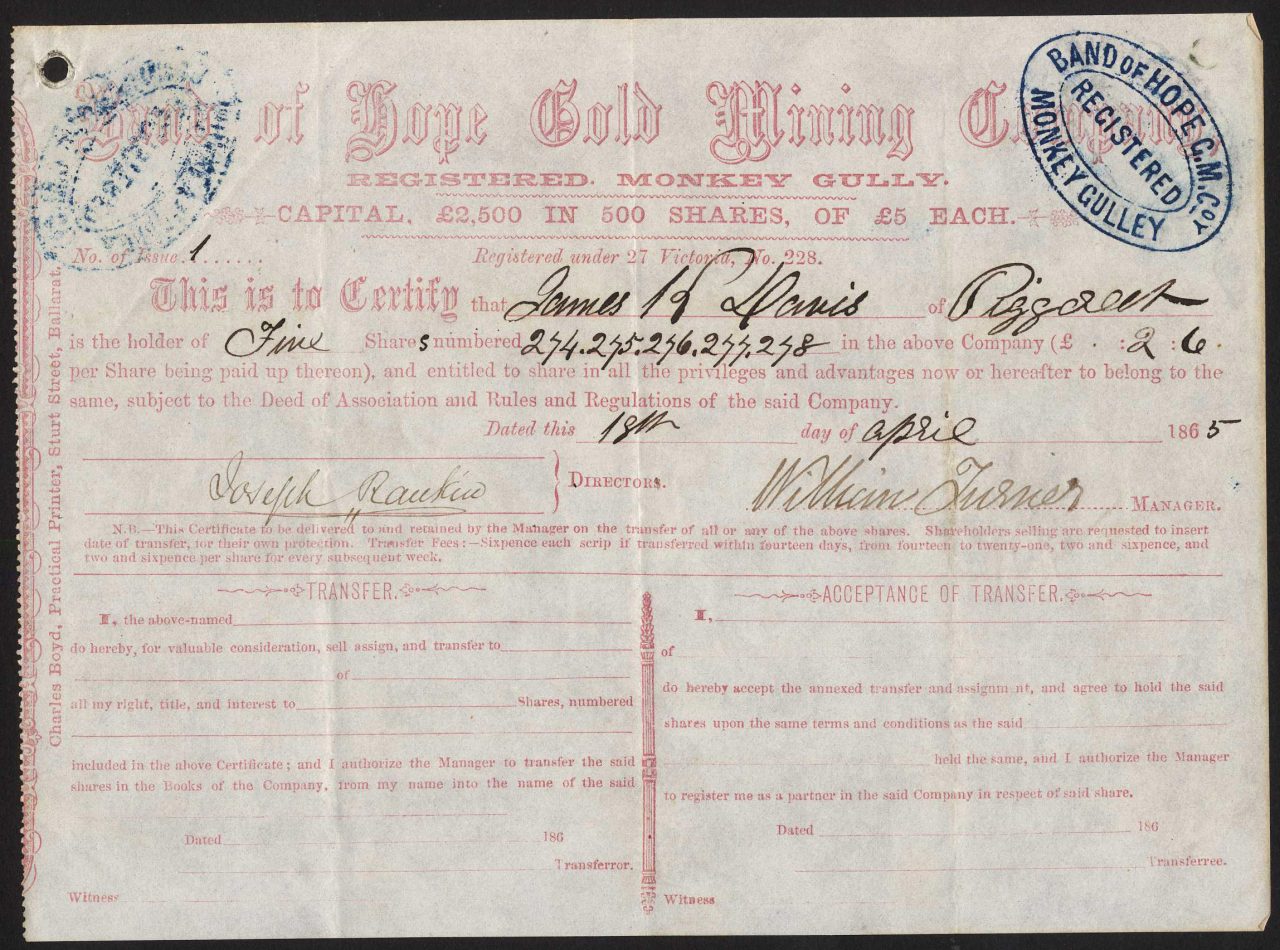 Band of Hope Gold Mining Company
REGISTERED. MONKEY GULLY.
CAPITAL, £2,500 IN 500 SHARES, OF £5 EACH.
BAND OF HOPE G.M.Coy
REGISTERED
MONKEY GULLEY
No. of Issue 1......
Registered under 27 Victoria, No. 228.
This is to Certify that James H Davis of Piggoreet
is the holder of Five Shares numbered 274.275.276.277.278 in the above Company (£ . : 2 : 6 .
per Share being paid up thereon), and entitled to share in all the privileges and advantages now or hereafter to belong to the
same, subject to the Deed of Association and Rules and Regulations of the said Company.
Dated this 18th day of April 1865
Joseph Rankin } DIRECTORS. William Turner MANAGER.
N.B.—This Certificate to be delivered to and retained by the Manager on the transfer of all or any of the above shares. Shareholders selling are requested to insert
date of transfer, for their own protection. Transfer Fees:—Sixpence each scrip if transferred within fourteen days, from fourteen to twenty-one, two and sixpence, and
two and sixpence per share for every subsequent week.
TRANSFER.
I, the above-named
do hereby, for valuable consideration, sell assign, and transfer to
of
all my right, title, and interest to Shares, numbered
included in the above Certificate; and I authorize the Manager to transfer the said
shares in the Books of the Company, from my name into the name of the said
Dated 186
Transferror.
Witness
ACCEPTANCE OF TRANSFER.
I,
of
do hereby accept the annexed transfer and assignm nt, and agree to hold the said
shares upon the same terms and conditions as the said
held the same, and I authorize the Manager
to register me as a partner in the said Company in respect of said share.
Dated 186
Transferree.
Witness
Charles Boyd, Practical Printer, Sturt Street, Ballarat.